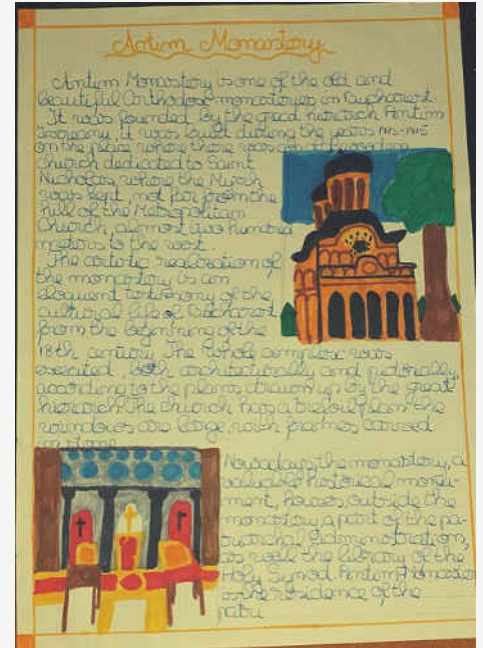 Antim Monastery
Antim Monastery is one of the old and
beautiful Orthodox monasteries in Bucharest.
It was founded by the great hierarch Antim
Ivireanu, it was built during the years
on the place where there was an old wooden
church dedicated to Saint
Nicholas, where the Myrrh
was kept, not far from the
hill of the Metropolitan
Church, almost two hundred
meters to the west.
The artistic realization of
the monastery is an
eloquent testimony of the
cultural life of Bucharest
from the beginning of the
18th century. The whole complex was
executed both architecturally and pictorially,
according to the plans drawn up by the great
hierarch. The church has a trefoil plan the
windows are large, with frames carved
in stone.
Nowadays, the monastery, a
valuable historical monu-
ment, houses, outside the
monastery, a part of the pa-
triarchal administration,
as well the library of the
Holy Synod. Antim Monastery
is the residence of the